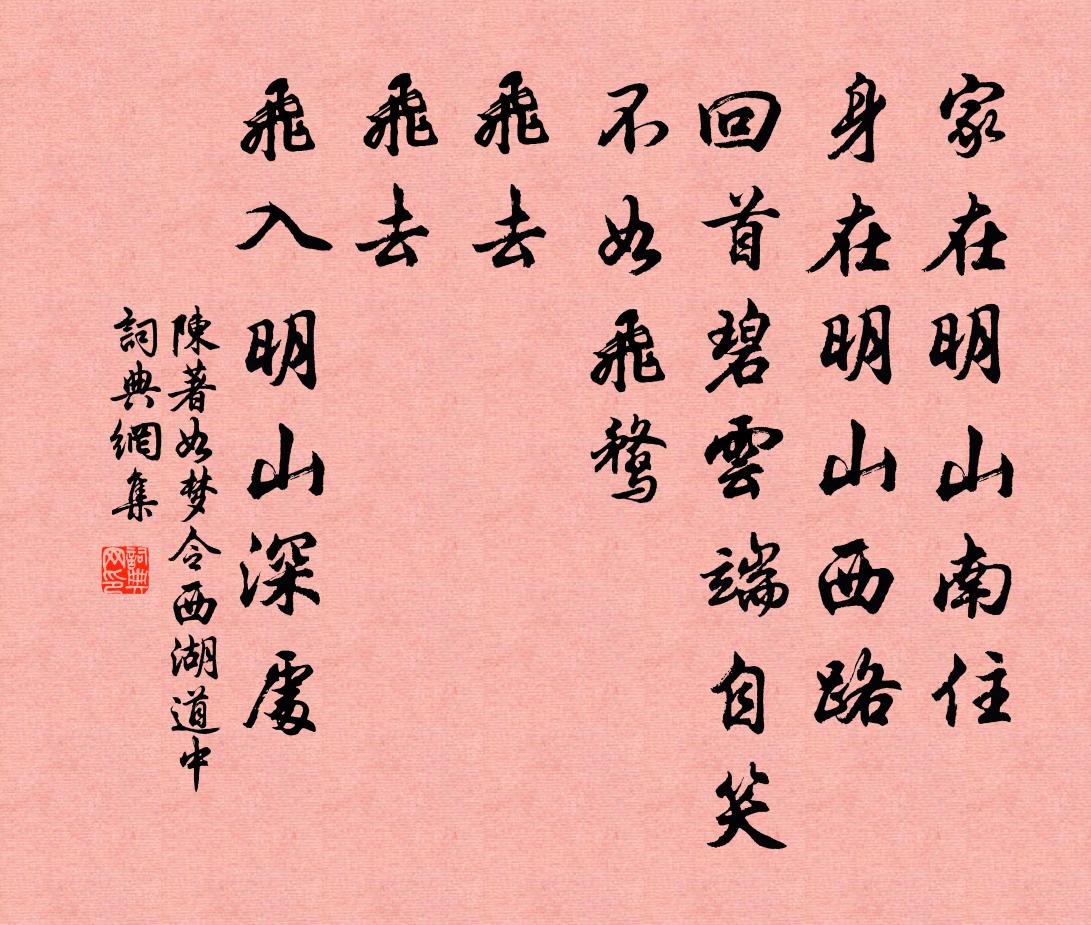 家在明山南住
身在明山西路
回首碧雲端自笑
不如飛鶩
飛去
飛去
飛入明山深處
陳著如梦令西湖道中
詞典網集
詞典网印